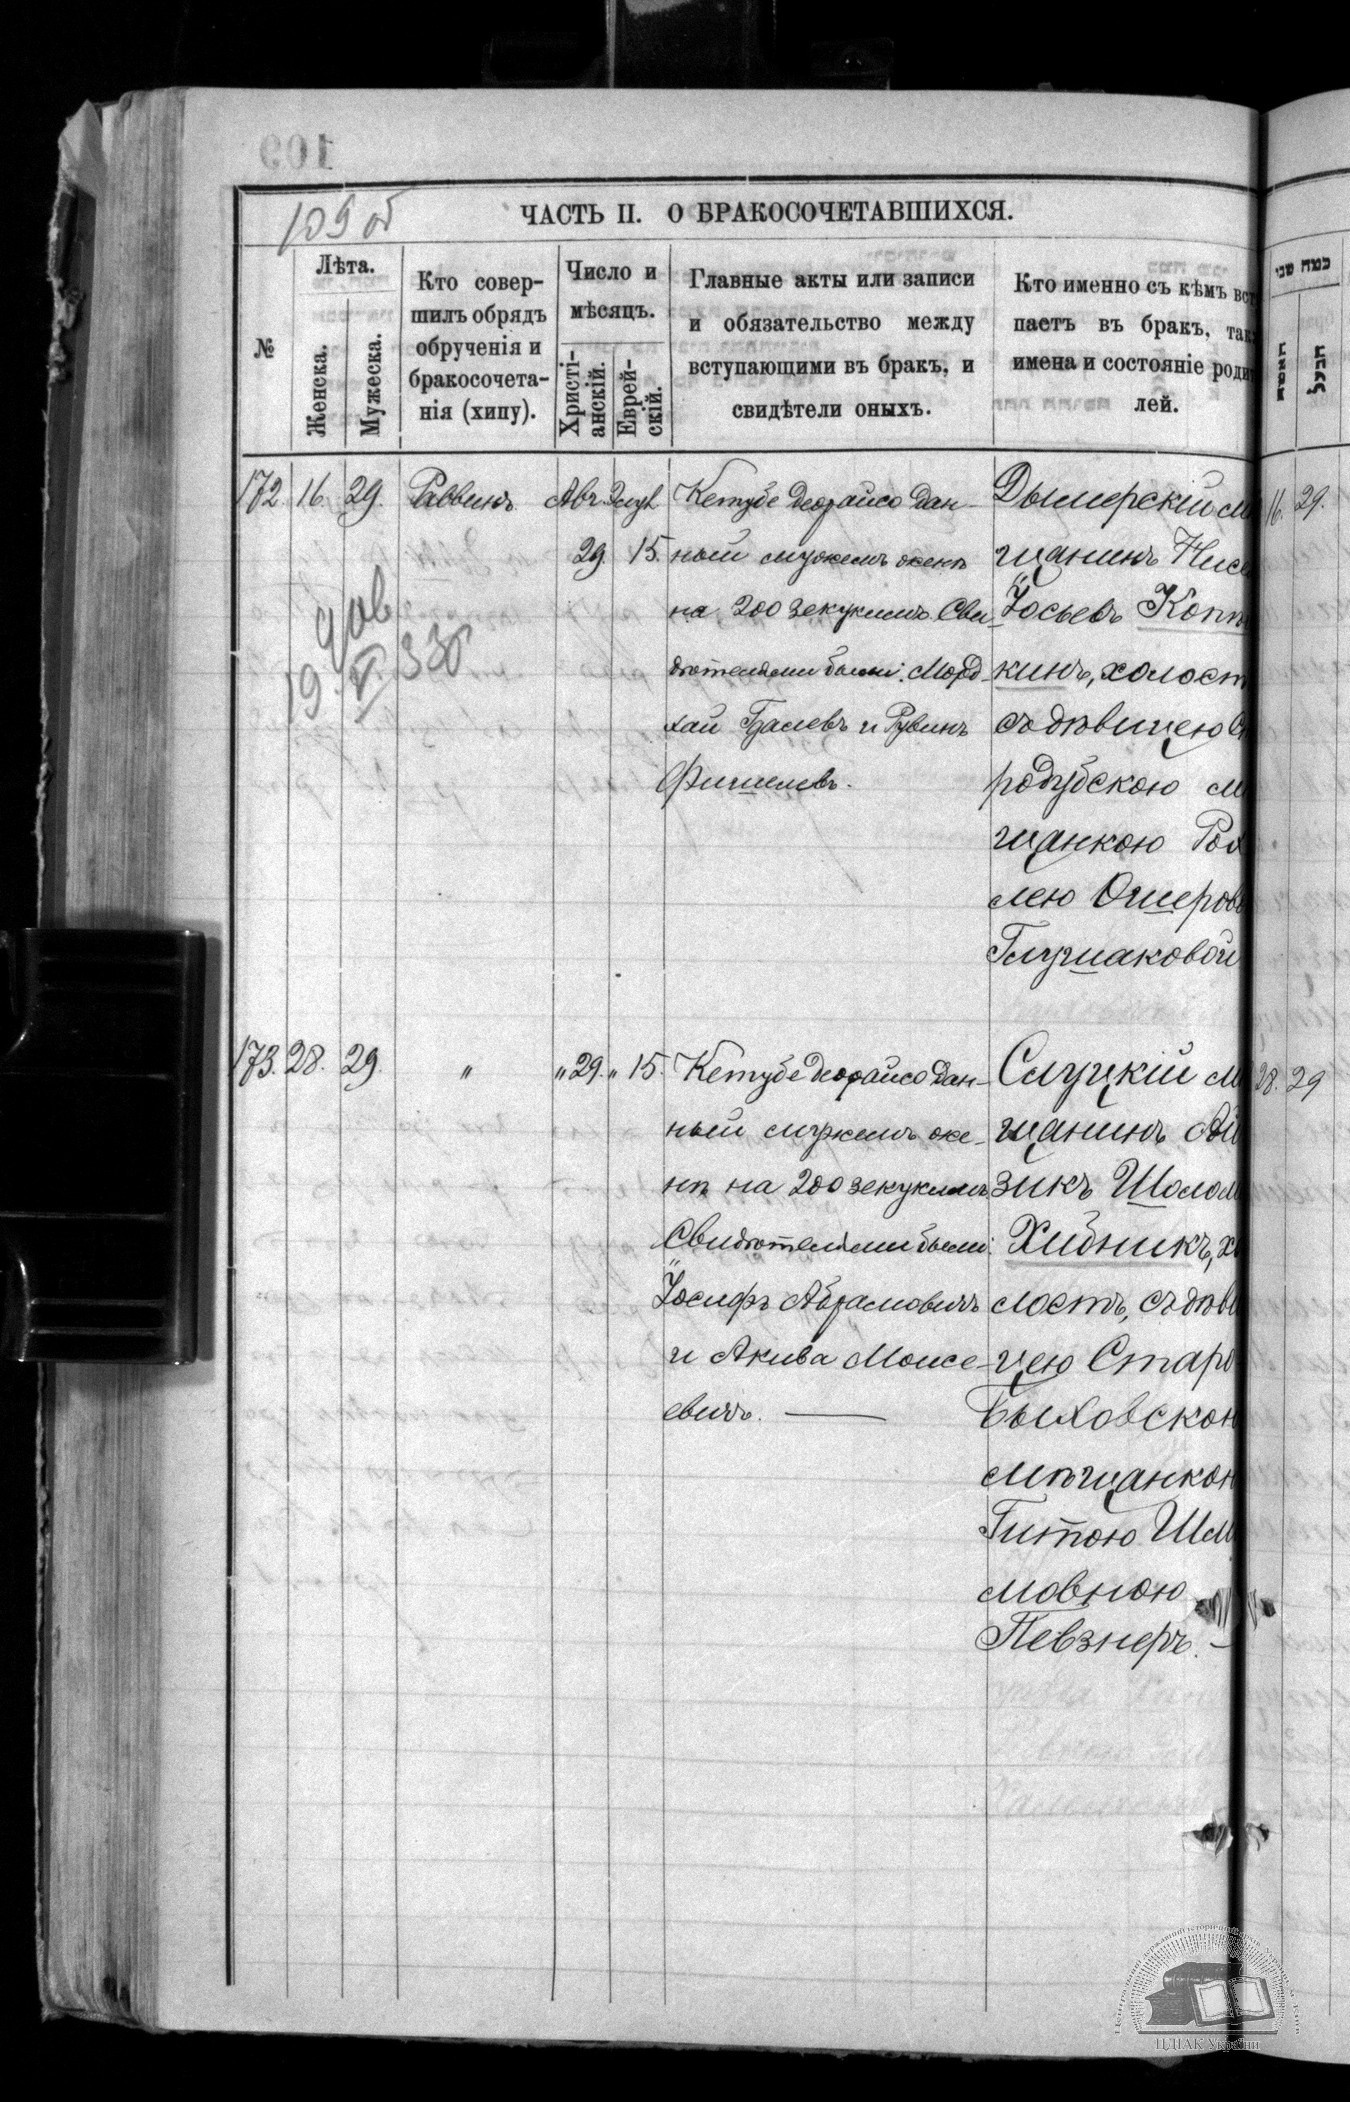 109
109 об
ЧАСТЬ II. О БРАКОСОЧЕТАВШИХСЯ.
№
Лѣта.
Женска.
Мужеска.
Кто совер-
шилъ обрядъ
обрученія и
бракосочета-
нія (хипу).
Число и
мѣсяцъ.
Христі-
анскій.
Еврей-
скій.
Главные акты или записи
и обязательство между
вступающими въ бракъ, и
свидѣтели оныхъ.
Кто именно съ кѣмъ вст
паетъ въ бракъ, так
имена и состояніе роди
лей.
כמה שני
האשה
הבעל
172 16. 29. Раввинъ Авг. Элул
29. 15.
Кетубе деорайсо дан-
ный мужемъ женѣ
на 200 зекукимъ. Сви-
дѣтелями были: Морд-
хай Баслевъ и Рувинъ
Фишелевъ.
Дымерскій м
щанинъ Нисе
Іосьевъ Копп
кинъ, холост
съ дѣвицею С
родубскою м
щанкою Рох
лею Ошеров
Глушаковой
16. 29.
дов
19. VI. 33г
173. 28. 29. " " 29. " 15.
Кетубе деорайсо дан-
ный мужемъ же-
нѣ на 200 зекукимъ
Свидѣтелями были:
Іосифъ Абрамовичъ
и Акива Моисе-
евичъ. —
Слуцкій м
щанинъ Ай
зикъ Шолом
Хибникъ, хо
лостъ, съ дѣви
цею Старо-
Быховскою
мѣщанкою
Гитою Шле
мовною
Певзнеръ. —
28. 29
ЦДІАК України